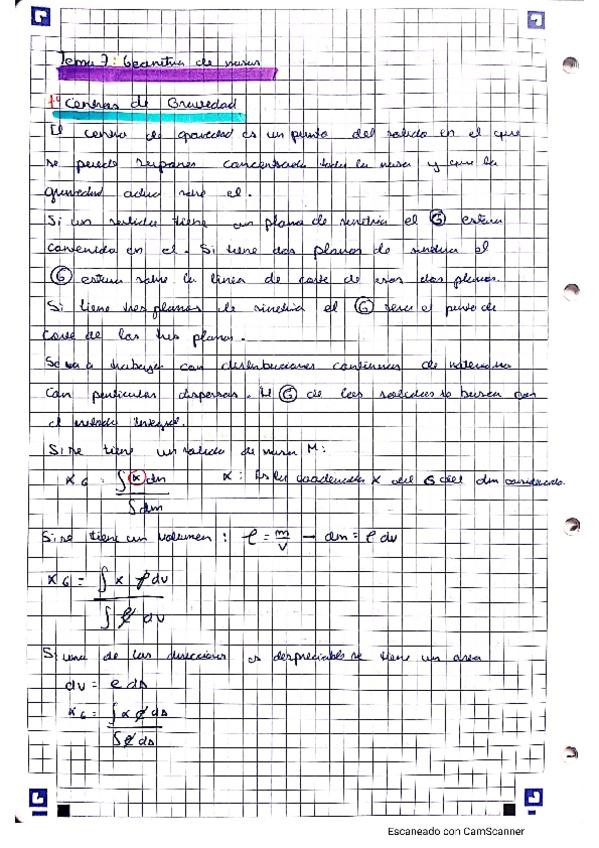 Tema 7: Geometria de masas
1º Centros de Gravedad
El centro de gravedad es un punto del solido en el que
se puede suponer concentrada toda la masa y que la
gravedad actua sobre el.
Si un solido tiene un plano de simetria el G estara
contenido en el. Si tiene dos planos de simetria el
G estara sobre la linea de corte de esos dos planos.
Si tiene tres planos de simetria el G sera el punto de
corte de los tres planos.
Se va a trabajar con distribuciones continuas de materia no
con particulas dispersas. El G de los solidos se busca con
el metodo integral.
Si se tiene un solido de masa M:
x G = ∫ x dm / ∫ dm x: Es la coordenada x del G del dm considerado.
Si se tiene un volumen: ρ = m/V → dm = ρ dv
x G = ∫ x ρ dv / ∫ ρ dv
Si una de las direcciones es despreciable se tiene un area
dv = e ds
x G = ∫ x e ds / ∫ e ds
Escaneado con CamScanner